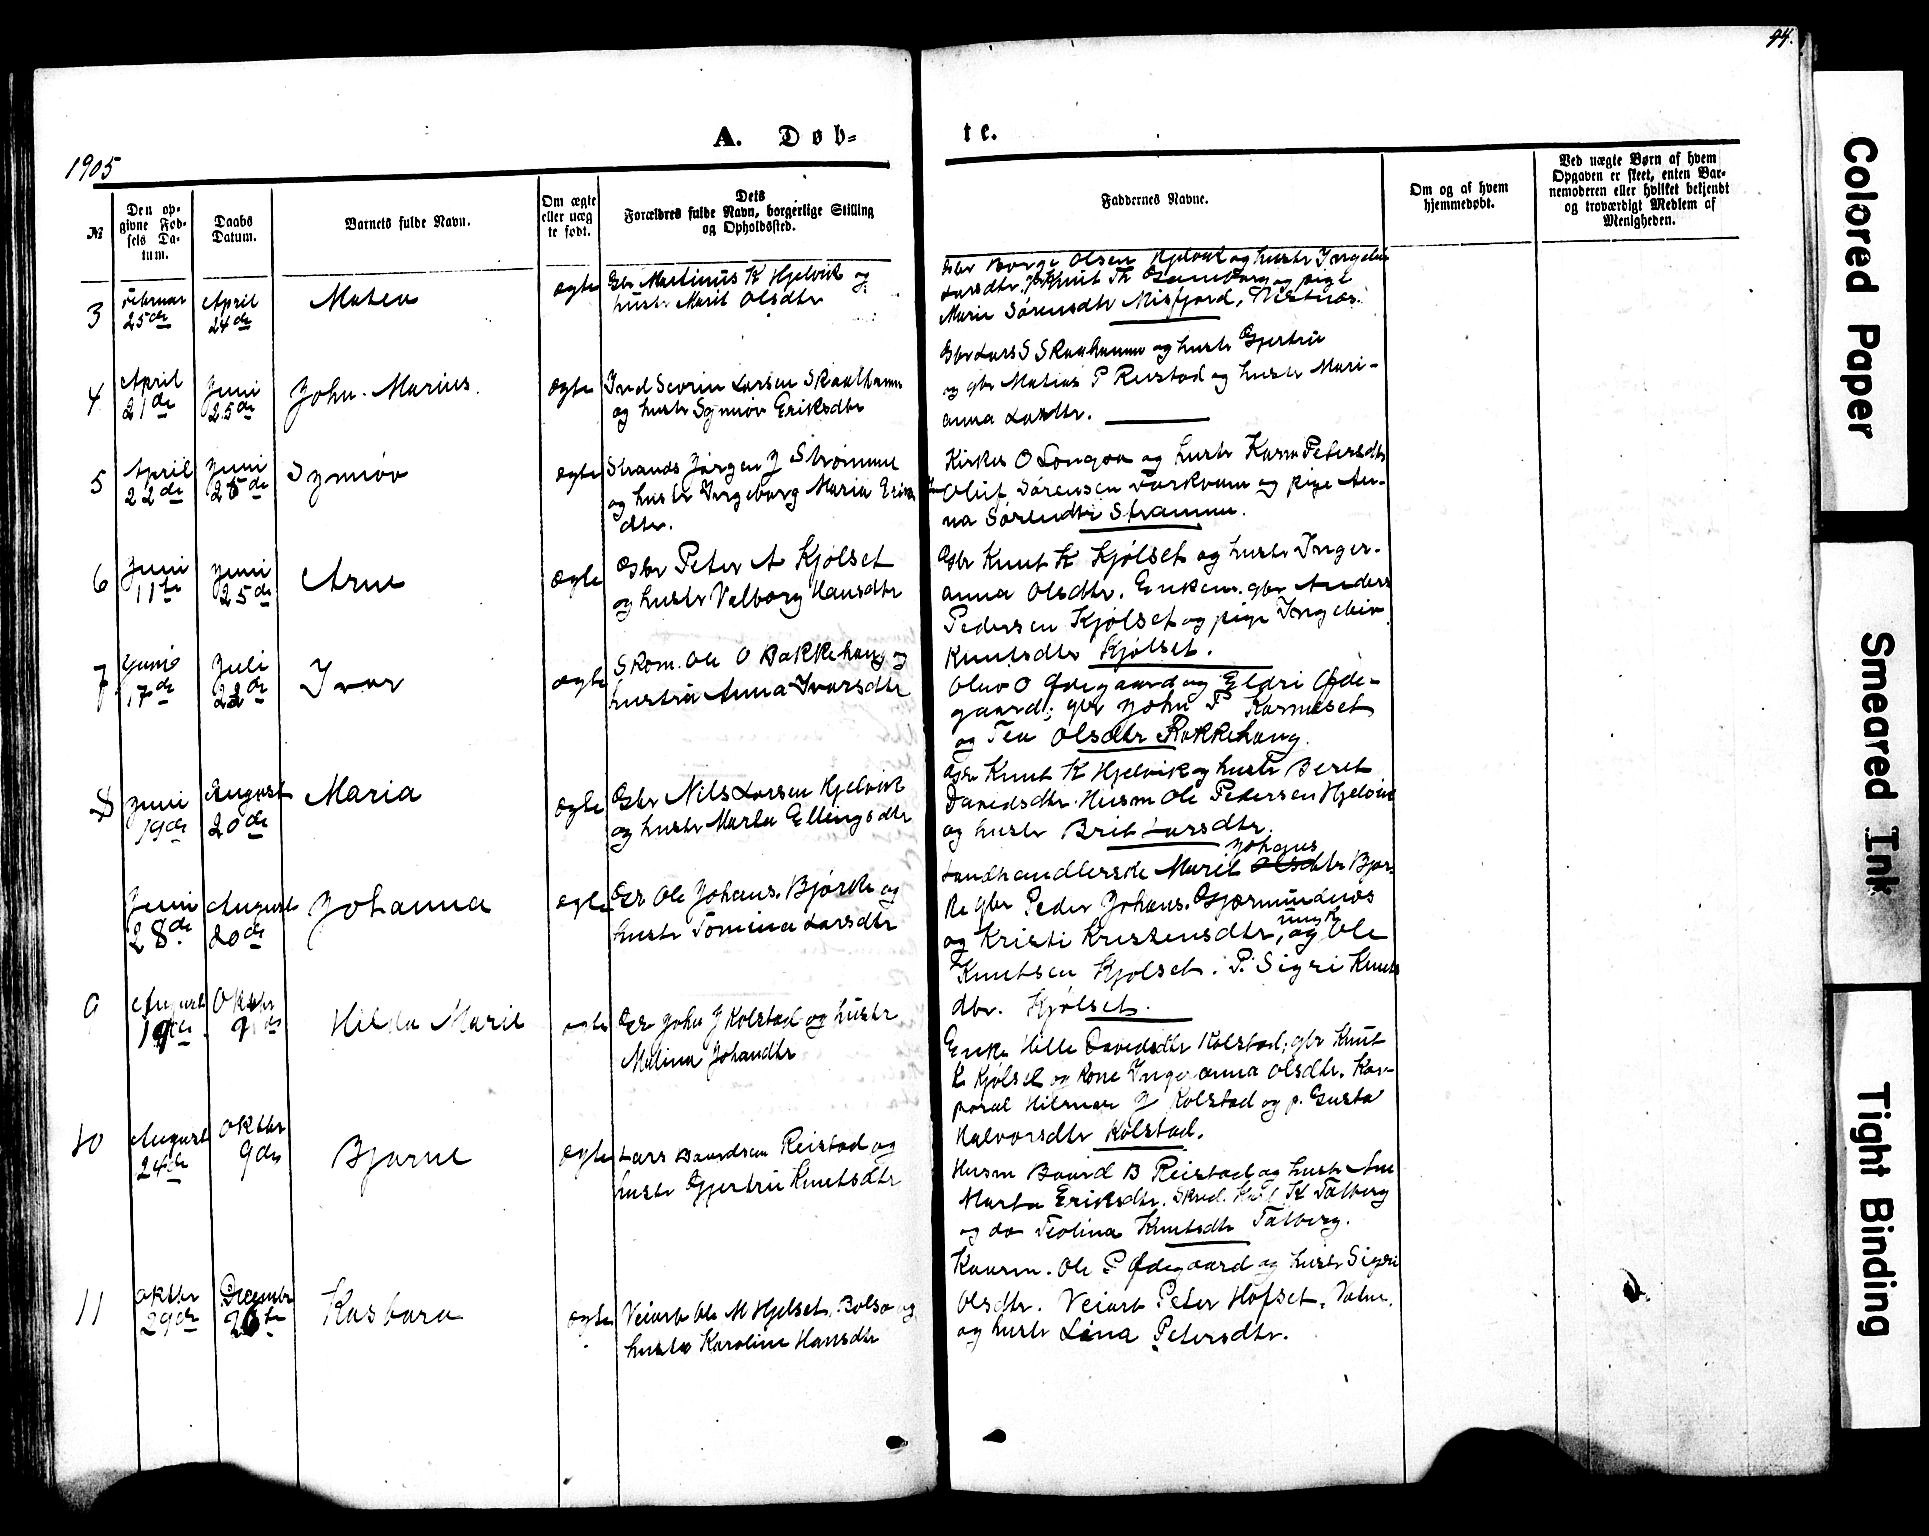 44.
A. Døb-
te.
1905
№
Den op-
givne Fød-
sels Da-
tum.
Daabs
Datum.
Barnets fulde Navn.
Om ægte
eller uæg
te født.
Dets
Forældres fulde Navn, borgerlige Stilling
og Opholdssted.
Faddernes Navne.
Om og af hvem
hjemmedøbt.
Ved uægte Børn af hvem
Opgaven er skeet, enten Bar-
nemoderen eller hvilket bekjendt
og troværdigt Medlem af
Menigheden.
3
Februar
25de
April
24de
Matea
ægte
Gbr Martinus K Hjelvik og
hustr Marit Olsdtr
Gbr Børge Olsen Hjelvik og hustr Ingebor
Larsdtr. Knut Th og pige
Marie Sørensdtr Misfjord,
4
April
21de
Juni
25de
John. Marius.
ægte
Ind Sevrin Larsen Skaalhamn
og hustr Synnøv Eriksdtr
Gbr Lars S Skaalhamn og hustr Gjertrue
og gbr Matias P Reistad og hustr Mari-
anna Larsdtr.
5
April
22de
Juni
25de
Synnøv
ægte
Strands Jørgen J Strømme
og hustr Ingeborg Maria Eriks
dtr.
Kirkes O Longva og hustr Karen Petersdtr
Oluf Sørensen Torkvam og pige An-
na Sørensdtr Strømme.
6
Juni
11te
Juni
25de
Arne
ægte
Gbr Peter A Kjølset
og hustr Valborg Hansdtr
Gbr Knut K Kjølset og hustr Inger-
anna Olsdtr. Enkem. gbr Anders
Pedersen Kjølset og pige Ingebor
Knutsdtr Kjølset.
7
Juni
17de
Juli
23de
Ivar
ægte
Skom. Ole O Bakkehaug og
hustru Anna Ivarsdtr
Oluv O Ødegaard og Eldri Øde-
gaard; gbr John P Karneset
og Tea Olsdtr Bakkehaug.
8
Juni
19de
August
20de
Maria
ægte
Gbr Nils Larsen Hjelvik
og hustr Marta Ellingsdtr
Gbr Knut K Hjelvik og hustr Beret
Davidsdtr. Husm Ole Pedersen Hjelvik
og hustr Brit Larsdtr.
Juni
28de
August
20de
Johanna
ægte
Gbr Ole Johans. Bjørke og
hustr Tomina Larsdtr
Johans
Landhandlerske Marit Olsdtr Bjør-
ke gbr Peder Johans. Gjermundnes
og Kristi Kristensdtr, og Ole
Knutsen Kjølset. P. Sigri Knuts
dtr. Kjølset.
August
Oktbr
9de
Hilda Marie
ægte
Gbr John J Kolstad og hustr
Malina Johandtr
Enke Hille Davidsdtr Kolstad; gbr Knut
K Kjølset og kone Inger anna Olsdtr. Kor-
poral Hilmar J Kolstad og p. Gusta
Halvorsdtr Kolstad.
10
August
24de
Oktbr
9de
Bjarne
ægte
Lars Baardsen Reistad og
hustr Gjertrue Knutsdtr
Husm Baard B Reistad og hustr Ane
Marta Eriksdtr. K Talberg
og do Teolina Knutsdtr Talberg.
11
Oktbr
29de
December
26te
Kasbara
ægte
Veiarb Ole M Hjelset, Bolsø og
hustr Karoline Hansdtr
Kaarm. Ole P Ødegaard og hustr Sigri
Olsdtr. Veiarb Peter Hofset,
og hustr Lina Petersdtr.
Colored Paper
Smeared Ink
Tight Binding